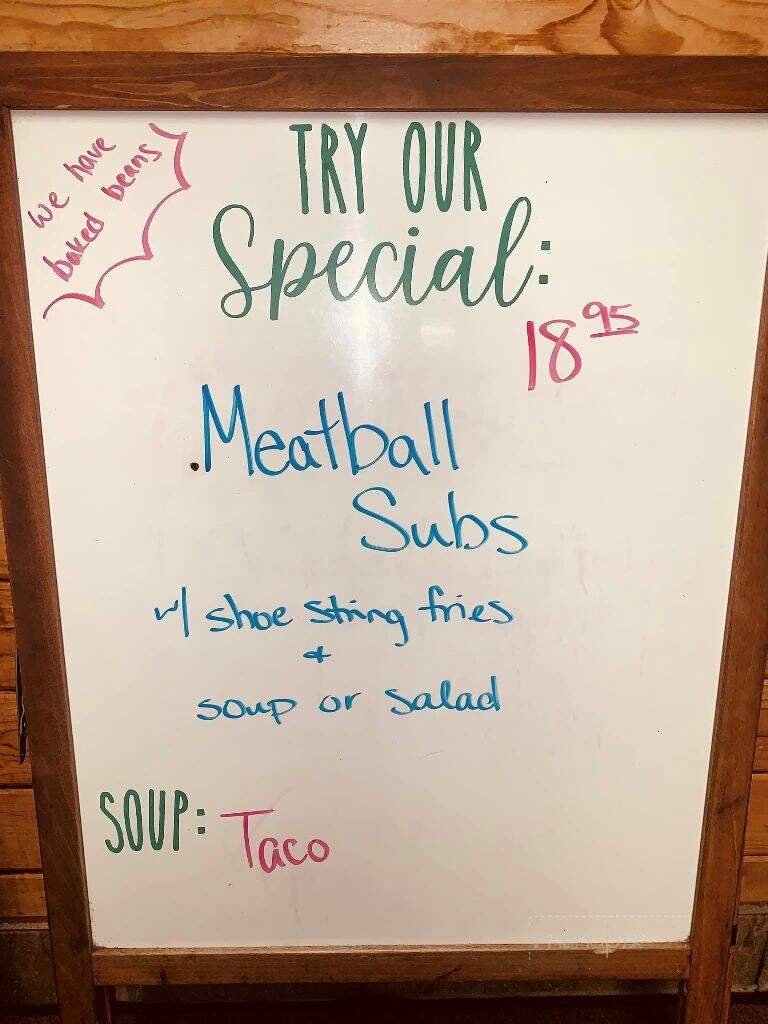 we have
baked beans
TRY OUR
Special:
18 95
.Meatball
Subs
w/ shoe string fries
+
soup or salad
SOUP: Taco